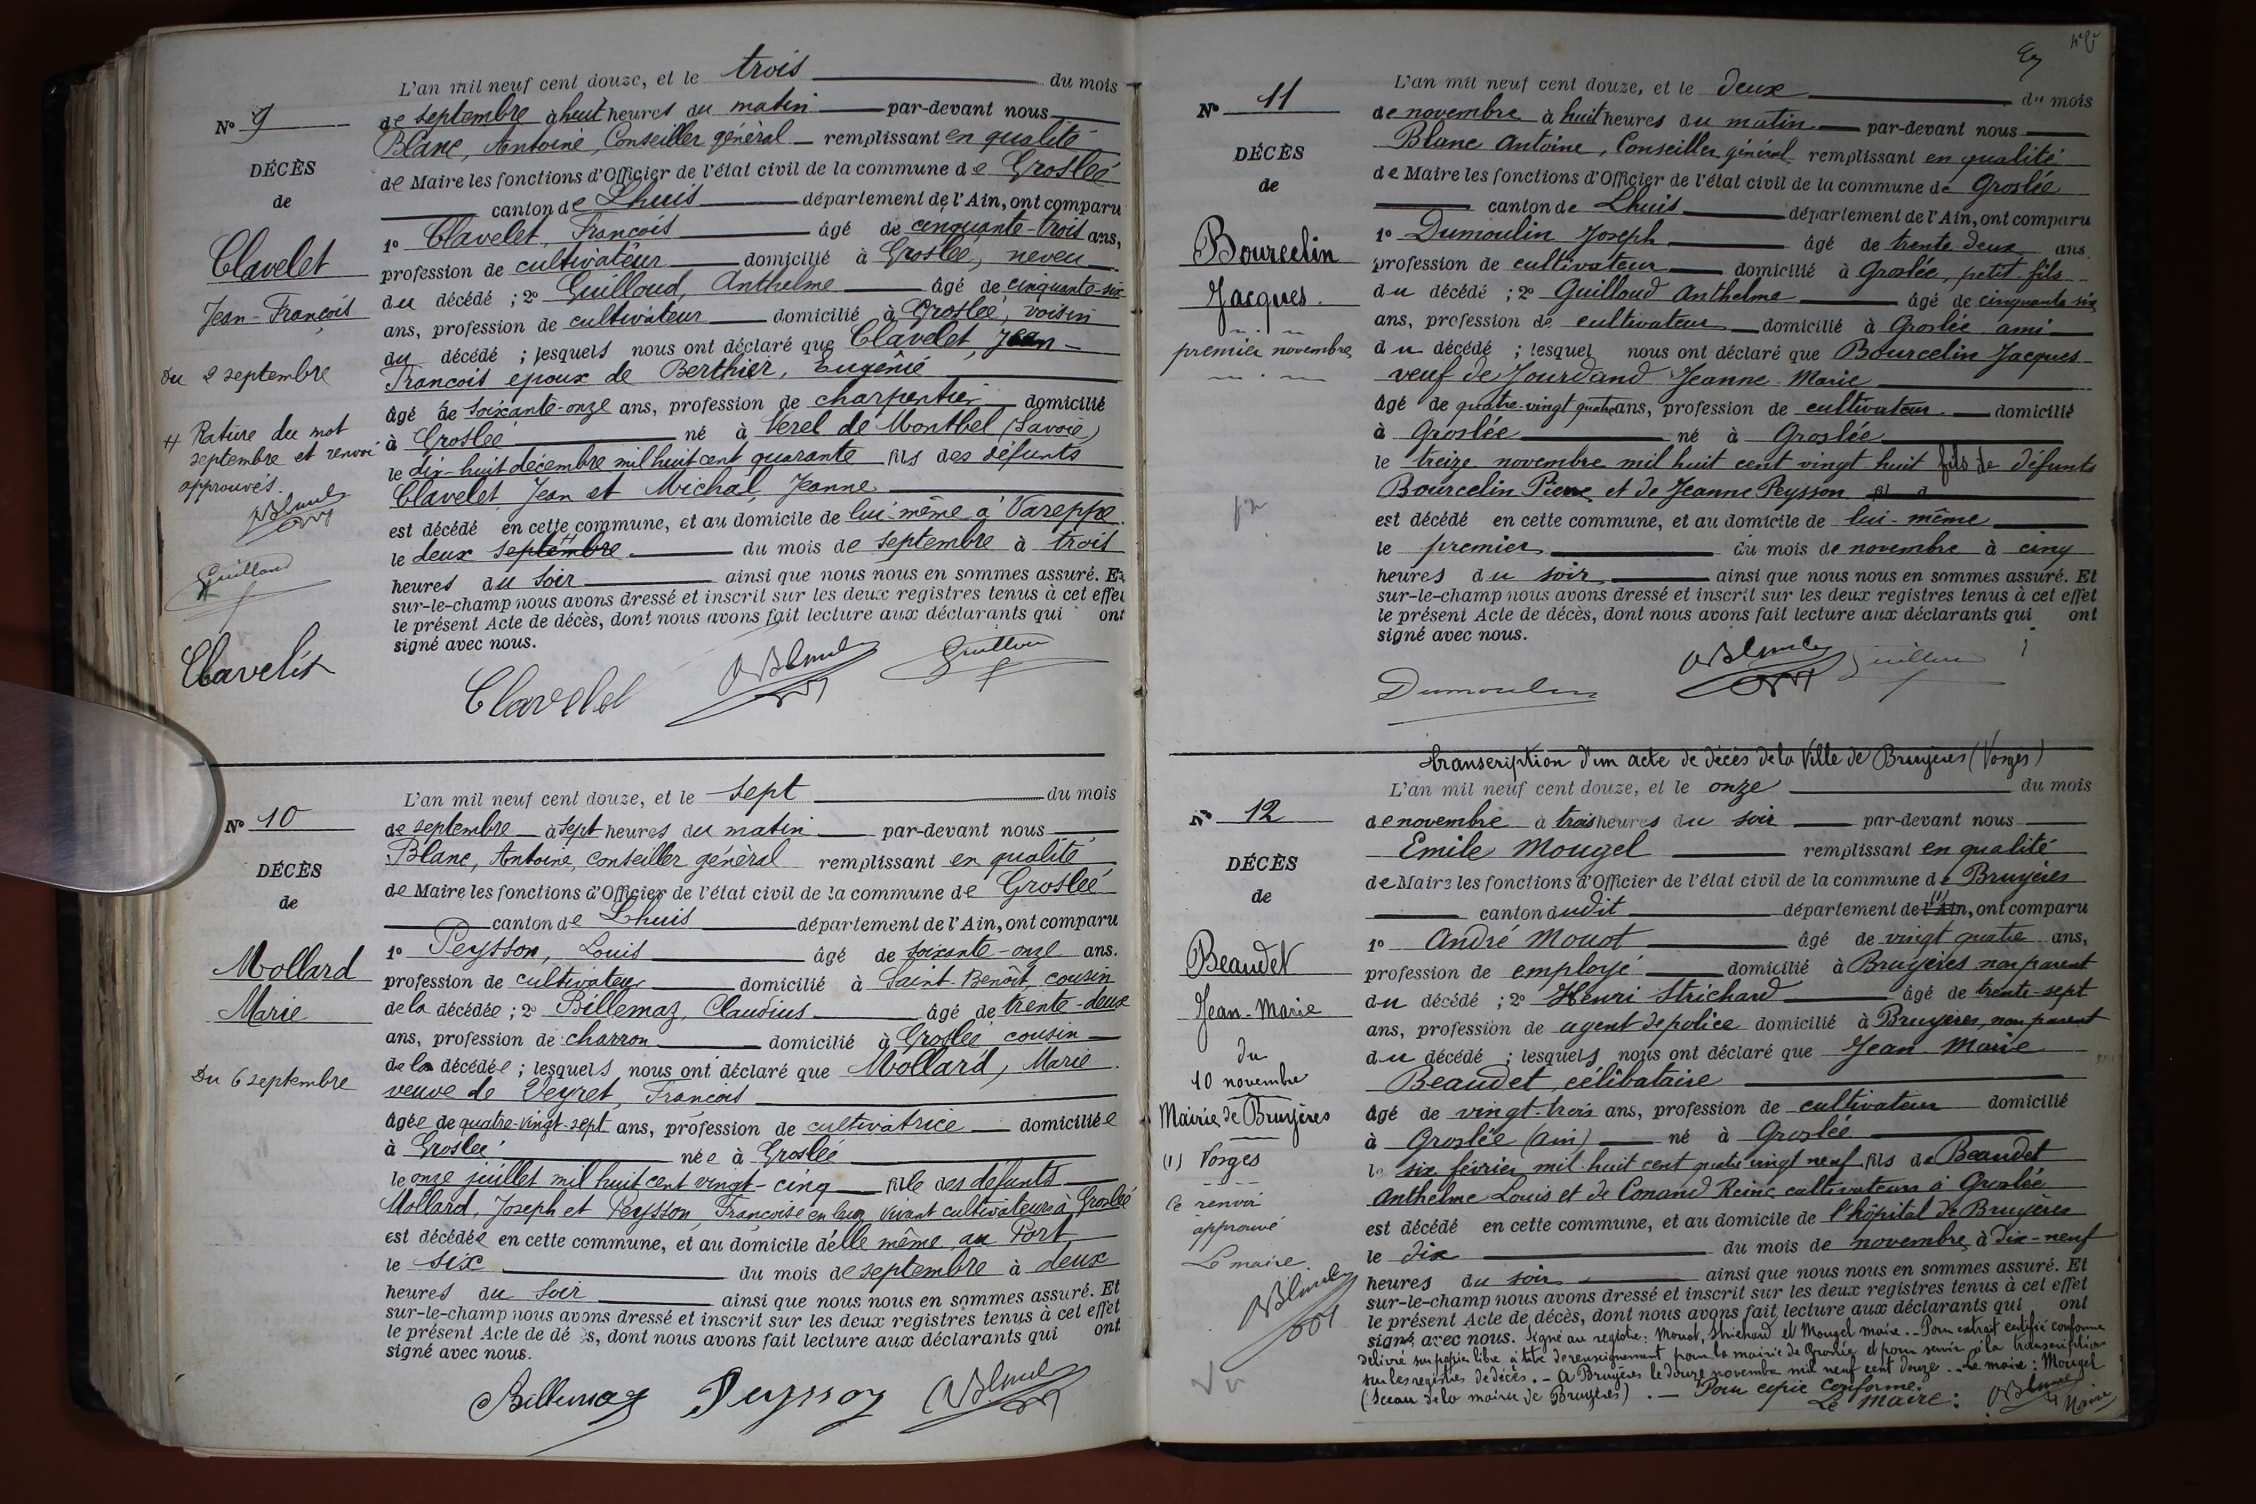 L'an mil neuf cent douze, et le trois du mois
Nº 9
de septembre à huit heures du matin par-devant nous
Blanc, Antoine, Conseiller général remplissant en qualité
DÉCÈS
de Maire les fonctions d'Officier de l'état civil de la commune de Groslée
de
canton de Lhuis département de l'Ain, ont comparu
1º Clavelet, François âgé de cinquante-trois ans,
Clavelet
profession de cultivateur domicilié à Groslée, neveu
du décédé ; 2º Guilloud, Anthelme âgé de cinquante-six
Jean-François
ans, profession de cultivateur domicilié à Groslée, voisin
du décédé ; lesquels nous ont déclaré que Clavelet, Jean-
Du 2 septembre
François époux de Berthier, Eugénie
âgé de soixante-onze ans, profession de charpentier domicilié
Rature du mot
septembre et renvoi
approuvés.
à Groslée né à Verel de Montbel (Savoie)
le dix-huit décembre mil huit cent quarante fils des défunts
Clavelet, Jean et Michal, Jeanne
ABlanc
est décédé en cette commune, et au domicile de lui-même à Vareppe
le deux septembre du mois de septembre à trois
Guilloud
heures du soir ainsi que nous nous en sommes assuré. Et
sur-le-champ nous avons dressé et inscrit sur les deux registres tenus à cet effet
le présent Acte de décès, dont nous avons fait lecture aux déclarants qui ont
signé avec nous.
Clavelet
Clavelet ABlanc Guilloud
L'an mil neuf cent douze, et le sept du mois
Nº 10
de septembre à sept heures du matin par-devant nous
Blanc, Antoine, conseiller général remplissant en qualité
DÉCÈS
de Maire les fonctions d'Officier de l'état civil de la commune de Groslée
de
canton de Lhuis département de l'Ain, ont comparu
1º Peysson, Louis âgé de soixante-onze ans.
Mollard
profession de cultivateur domicilié à Saint-Benoît, cousin
Marie
de la décédée ; 2º Billemaz, Claudius âgé de trente-deux
ans, profession de charron domicilié à Groslée cousin
de la décédée ; lesquels nous ont déclaré que Mollard, Marie
Du 6 septembre
veuve de Veyret, François
âgée de quatre-vingt-sept ans, profession de cultivatrice domiciliée
à Groslée née à Groslée
le onze juillet mil huit cent vingt-cinq fille des défunts
Mollard, Joseph et Peysson, Françoise en leur vivant cultivateurs à Groslée
est décédée en cette commune, et au domicile d'elle même au Port
le six du mois de septembre à deux
heures du soir ainsi que nous nous en sommes assuré. Et
sur-le-champ nous avons dressé et inscrit sur les deux registres tenus à cet effet
le présent Acte de dé s, dont nous avons fait lecture aux déclarants qui ont
signé avec nous.
Billemaz Peysson ABlanc
L'an mil neuf cent douze, et le deux du mois
Nº 11
de novembre à huit heures du matin par-devant nous
Blanc Antoine, Conseiller général remplissant en qualité
DÉCÈS
de Maire les fonctions d'Officier de l'état civil de la commune de Groslée
de
canton de Lhuis département de l'Ain, ont comparu
1º Dumoulin Joseph âgé de trente deux ans
Bourcelin
profession de cultivateur domicilié à Groslée, petit-fils
Jacques
du décédé ; 2º Guilloud Anthelme âgé de cinquante six
ans, profession de cultivateur domicilié à Groslée ami
premier novembre
du décédé ; lesquel nous ont déclaré que Bourcelin Jacques
veuf de Jourdand Jeanne-Marie
âgé de quatre-vingt quatre ans, profession de cultivateur domicilié
à Groslée né à Groslée
le treize novembre mil huit cent vingt-huit fils de défunts
Bourcelin Pierre et de Jeanne Peysson
est décédé en cette commune, et au domicile de lui-même
le premier du mois de novembre à cinq
heures du soir ainsi que nous nous en sommes assuré. Et
sur-le-champ nous avons dressé et inscrit sur les deux registres tenus à cet effet
le présent Acte de décès, dont nous avons fait lecture aux déclarants qui ont
signé avec nous.
Dumoulin ABlanc Guilloud
transcription d'un acte de décès de la Ville de Bruyères (Vosges)
L'an mil neuf cent douze, et le onze du mois
Nº 12
de novembre à trois heures du soir par-devant nous
Emile Mougel remplissant en qualité
DÉCÈS
de Maire les fonctions d'Officier de l'état civil de la commune de Bruyères
de
canton dudit département de l'Ain, (1) ont comparu
1º André Mouot âgé de vingt quatre ans,
Beaudet
profession de employé domicilié à Bruyères non parent
Jean-Marie
du décédé ; 2º Henri Strichard âgé de trente-sept
ans, profession de agent de police domicilié à Bruyères, non parent
du
10 novembre
du décédé ; lesquels nous ont déclaré que Jean Marie
Beaudet, célibataire
Mairie de Bruyères
âgé de vingt-trois ans, profession de cultivateur domicilié
à Groslée (Ain) né à Groslée
(1) Vosges
le six février mil huit cent quatre vingt neuf fils de Beaudet
Anthelme Louis et de Conand Reine cultivateurs à Groslée
Ce renvoi
approuvé
Le maire.
est décédé en cette commune, et au domicile de l'hôpital de Bruyères
le dix du mois de novembre à dix-neuf
ABlanc
heures du soir ainsi que nous nous en sommes assuré. Et
sur-le-champ nous avons dressé et inscrit sur les deux registres tenus à cet effet
le présent Acte de décès, dont nous avons fait lecture aux déclarants qui ont
signé avec nous. Signé au registre : Mouot, Strichard et Mougel maire. - Pour extrait certifié conforme
délivré sur papier libre à titre de renseignement pour la mairie de Groslée et pour servir à la transcription
sur les registres de décès. - A Bruyères le douze novembre mil neuf cent douze. - Le maire : Mougel
(Sceau de la mairie de Bruyères). - Pour copie conforme.
Le Maire : ABlanc